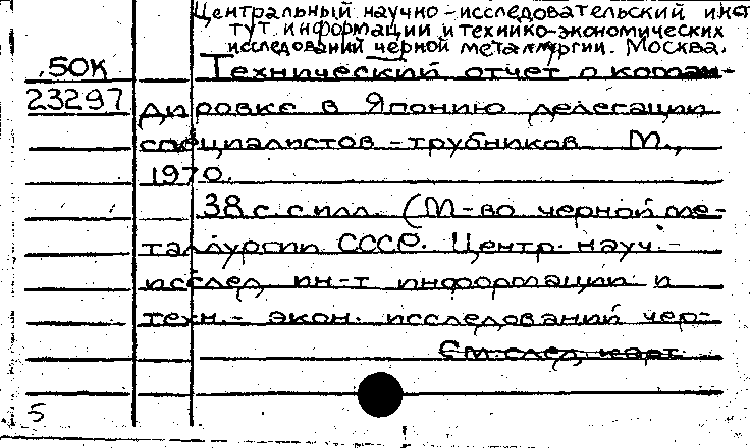 Центральный научно-исследовательский инс
тут информации и технико-экономических
исследований черной металлургии. Москва.
50К Технический отчет о коман-
23297 дировке в Японию делегации
специалистов-трубников М.,
1970.
38 с. с илл. (М-во черной ме-
таллургии СССР. Центр. науч.-
исслед. ин-т информации и
техн.-экон. исследований чер-
См. след. карт.
5